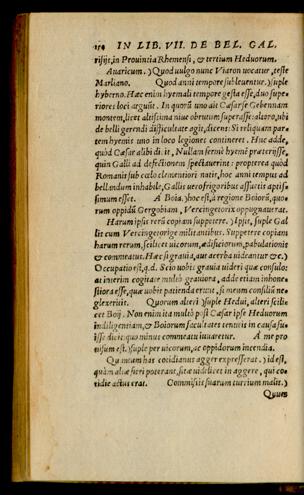 154 IN LIB. VII. DE BEL. GAL.
risijt, in Prouintia Rhemensi, & tertium Heduorum.
Auaricum.) Quod uulgo nunc Viaron uocatur, teste
Marliano. Quod anni tempore subleuentur.) suple
hyberno. Hæc enim hyemali tempore gesta esse, duo supe-
riores loci arguūt. In quorū uno ait Cæsar se Gebennam
montem, licet altissima niue obrutum superasse: altero, ubi
de belli gerendi difficultate agit, dicens: Si reliquam par-
tem hyemis uno in loco legiones contineret. Huc adde,
quòd Cæsar alibi dicit, Nullam fermè hyemē præterisse,
quin Galli ad defectionem spectauerint: propterea quòd
Romanis sub cœlo clementiori natis, hoc anni tempus ad
bellandum inhabile, Gallis uerò frigoribus assuetis aptis-
simum esset. A Boia.) hoc est, à regione Boiorū, quo-
rum oppidū Gergobiam, Vercingetorix oppugnauerat.
Harum ipsis rerū copiam suppetere.) Ipsis, suple Gal
lis cum Vercingetorige militantibus. Suppetere copiam
harum rerum, scilicet uicorum, ædificiorum, pabulationis
& commeatus. Hæc si grauia, aut acerba uideantur &c.)
Occupatio est, q.d. Scio uobis grauia uideri quæ consulo:
at interim cogitare multò grauiora, adde etiam inhone-
stiora esse, quæ uobis patienda erunt, si meum consiliū ne-
glexeritis. Quorum alteri) suple Hedui, alteri scili-
cet Boij. Non enim ita multò pòst Cæsar ipse Heduorum
indiligentiam, & Boiorum facultates tenueis in causa fu-
isse dicit: quo minus commeatu iuuaretur. A me pro
uisum est.) suple per uicorum, ac oppidorum incendia.
Quantum has cotidianus agger expresserat.) id est,
quàm altæ fieri poterant, sicæ uidelicet in aggere, qui co-
tidie actus erat. Commissis suarum turrium malis.)
Quæs